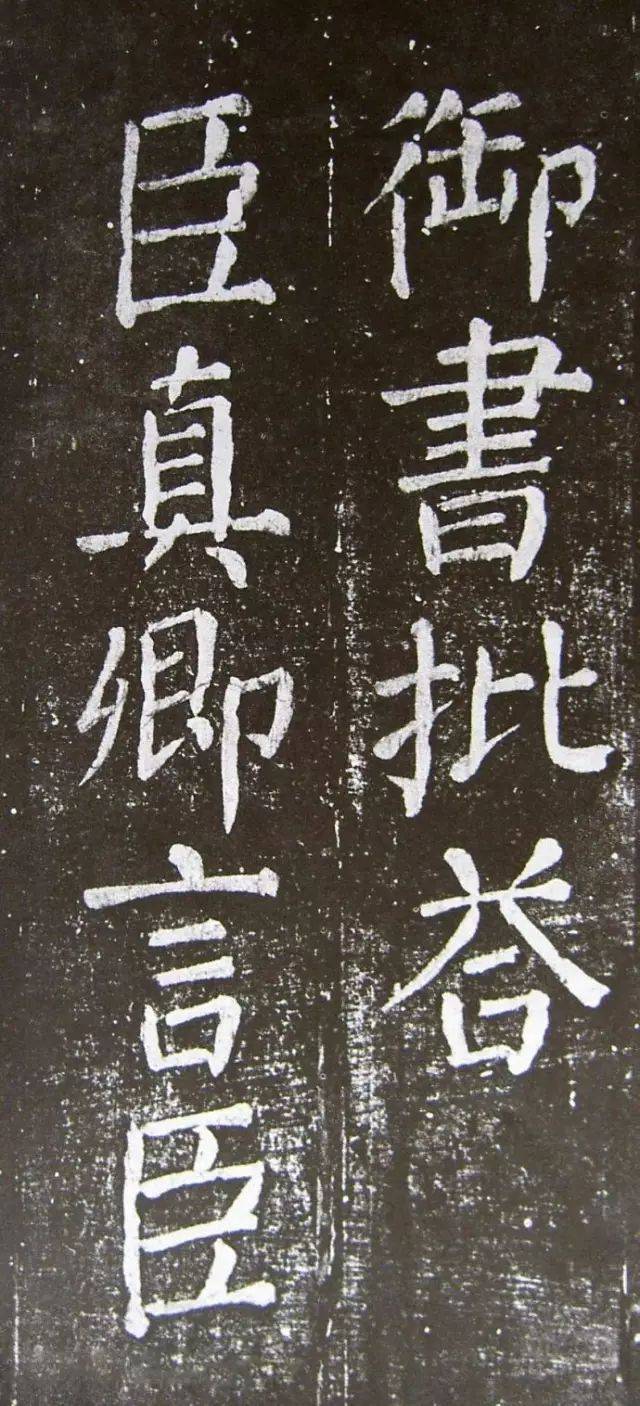 御書批答
臣真卿言臣